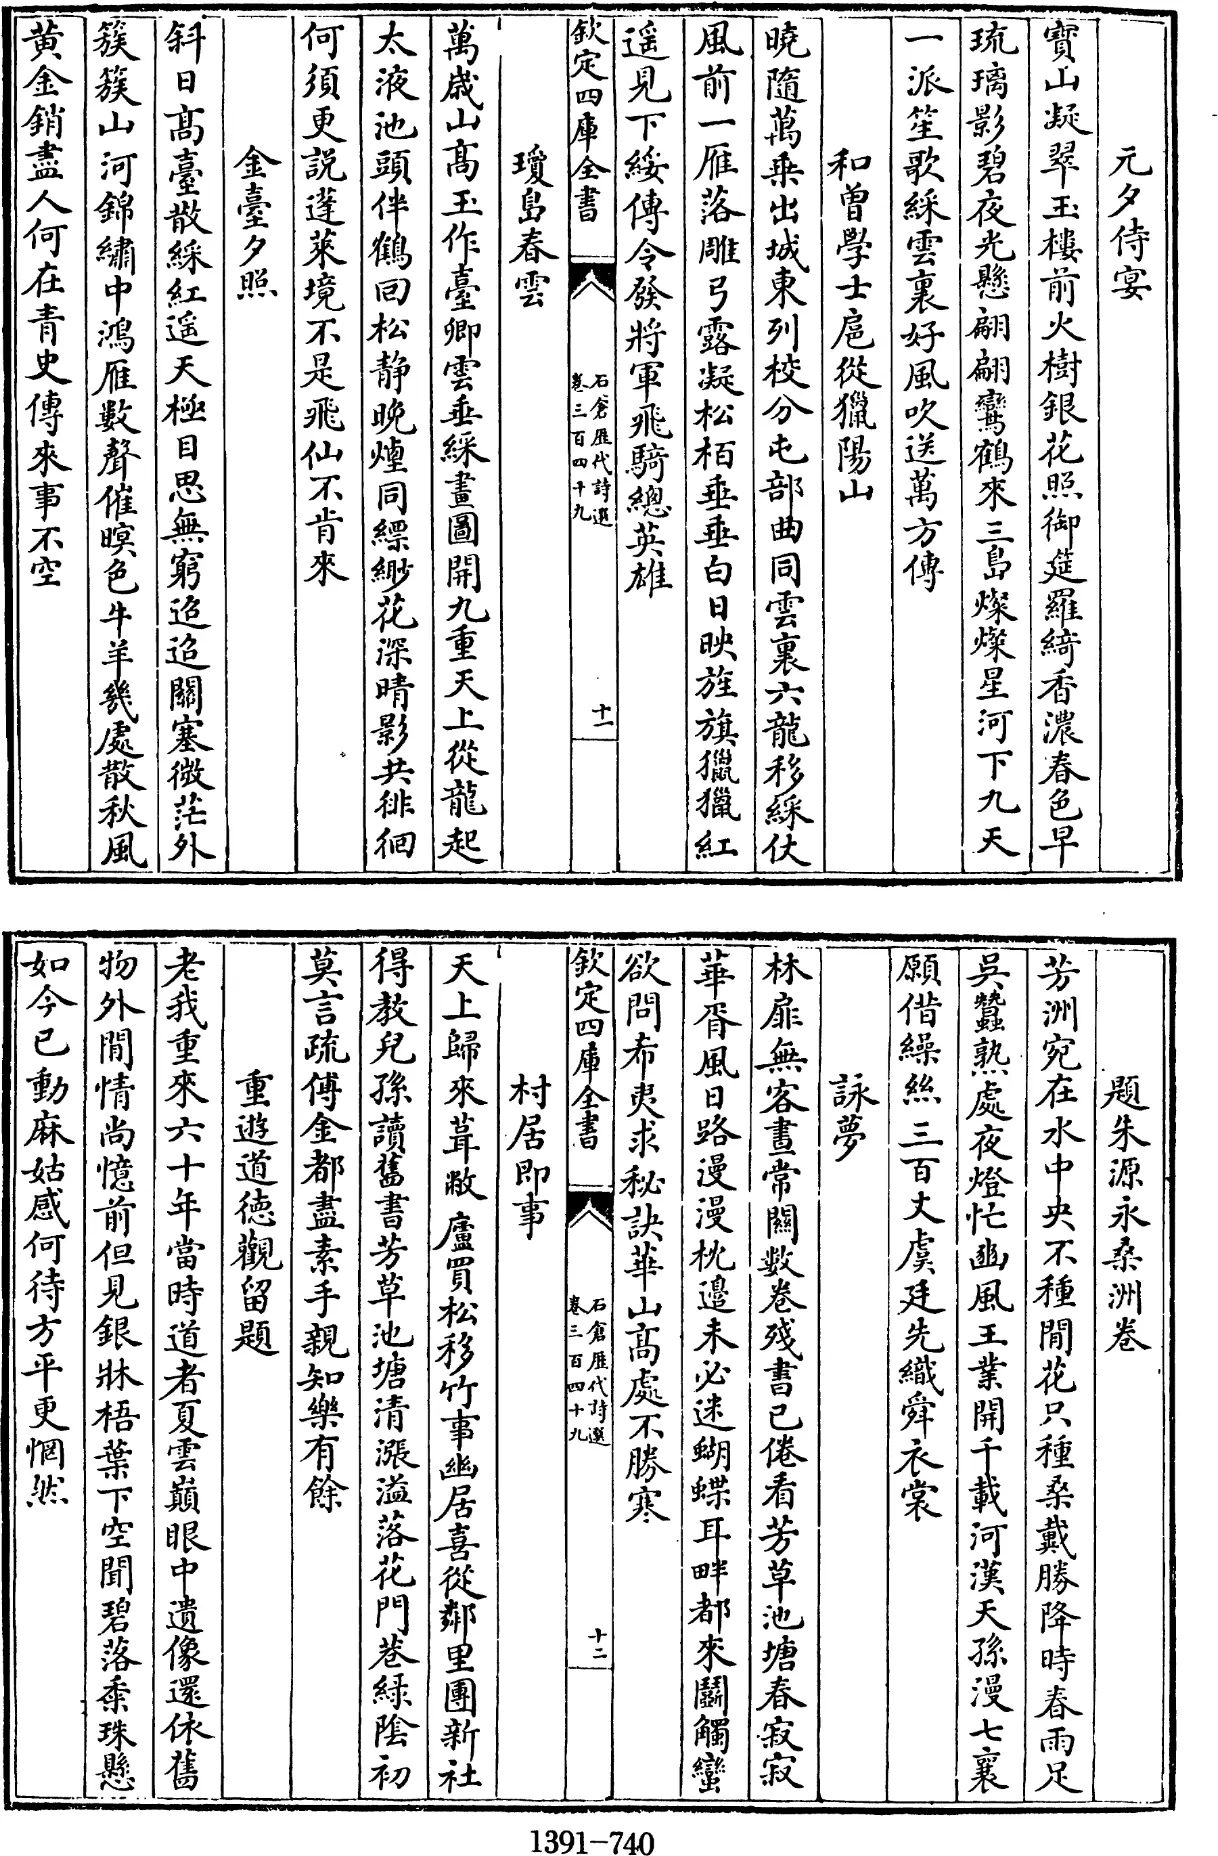 元夕侍宴
寶山凝翠玉樓前火樹銀花照御筵羅綺香濃春色早
琉璃影碧夜光懸翩翩鸞鶴來三島燦燦星河下九天
一派笙歌綵雲裏好風吹送萬方傳
和曽學士扈從獵陽山
曉隨萬乗出城東列校分屯部曲同雲裏六龍移綵仗
風前一雁落雕弓露凝松栢垂垂白日映旌旗獵獵紅
遥見下綏傳令發將軍飛騎總英雄
欽定四庫全書
石倉歷代詩選
卷三百四十九
十一
瓊島春雲
萬歲山髙玉作臺卿雲垂綵畫圖開九重天上從龍起
太液池頭伴鶴回松静晩煙同縹緲花深晴影共徘徊
何須更説蓬萊境不是飛仙不肯來
金臺夕照
斜日髙臺散綵紅遥天極目思無窮迢迢關塞微茫外
簇簇山河錦繡中鴻雁數聲催暝色牛羊幾處散秋風
黄金銷盡人何在青史傳來事不空
題朱源永桑洲卷
芳洲宛在水中央不種閒花只種桑戴勝降時春雨足
吳蠶熟處夜燈忙豳風王業開千載河漢天孫漫七襄
願借繰絲三百丈虞廷先織舜衣裳
詠夢
林扉無客晝常關數卷殘書已倦看芳草池塘春寂寂
華胥風日路漫漫枕邉未必迷蝴蝶耳畔都來鬭觸蠻
欲問希夷求秘訣華山髙處不勝寒
欽定四庫全書
石倉歷代詩選
卷三百四十九
十二
村居即事
天上歸來葺敝廬買松移竹事幽居喜從鄰里團新社
得教兒孫讀舊書芳草池塘清漲溢落花門巷緑隂初
莫言疏傅金都盡素手親知樂有餘
重遊道徳觀留題
老我重來六十年當時道者夏雲巔眼中遺像還依舊
物外閒情尚憶前但見銀牀梧葉下空聞碧落黍珠懸
如今已動麻姑感何待方平更惘然
1391-740